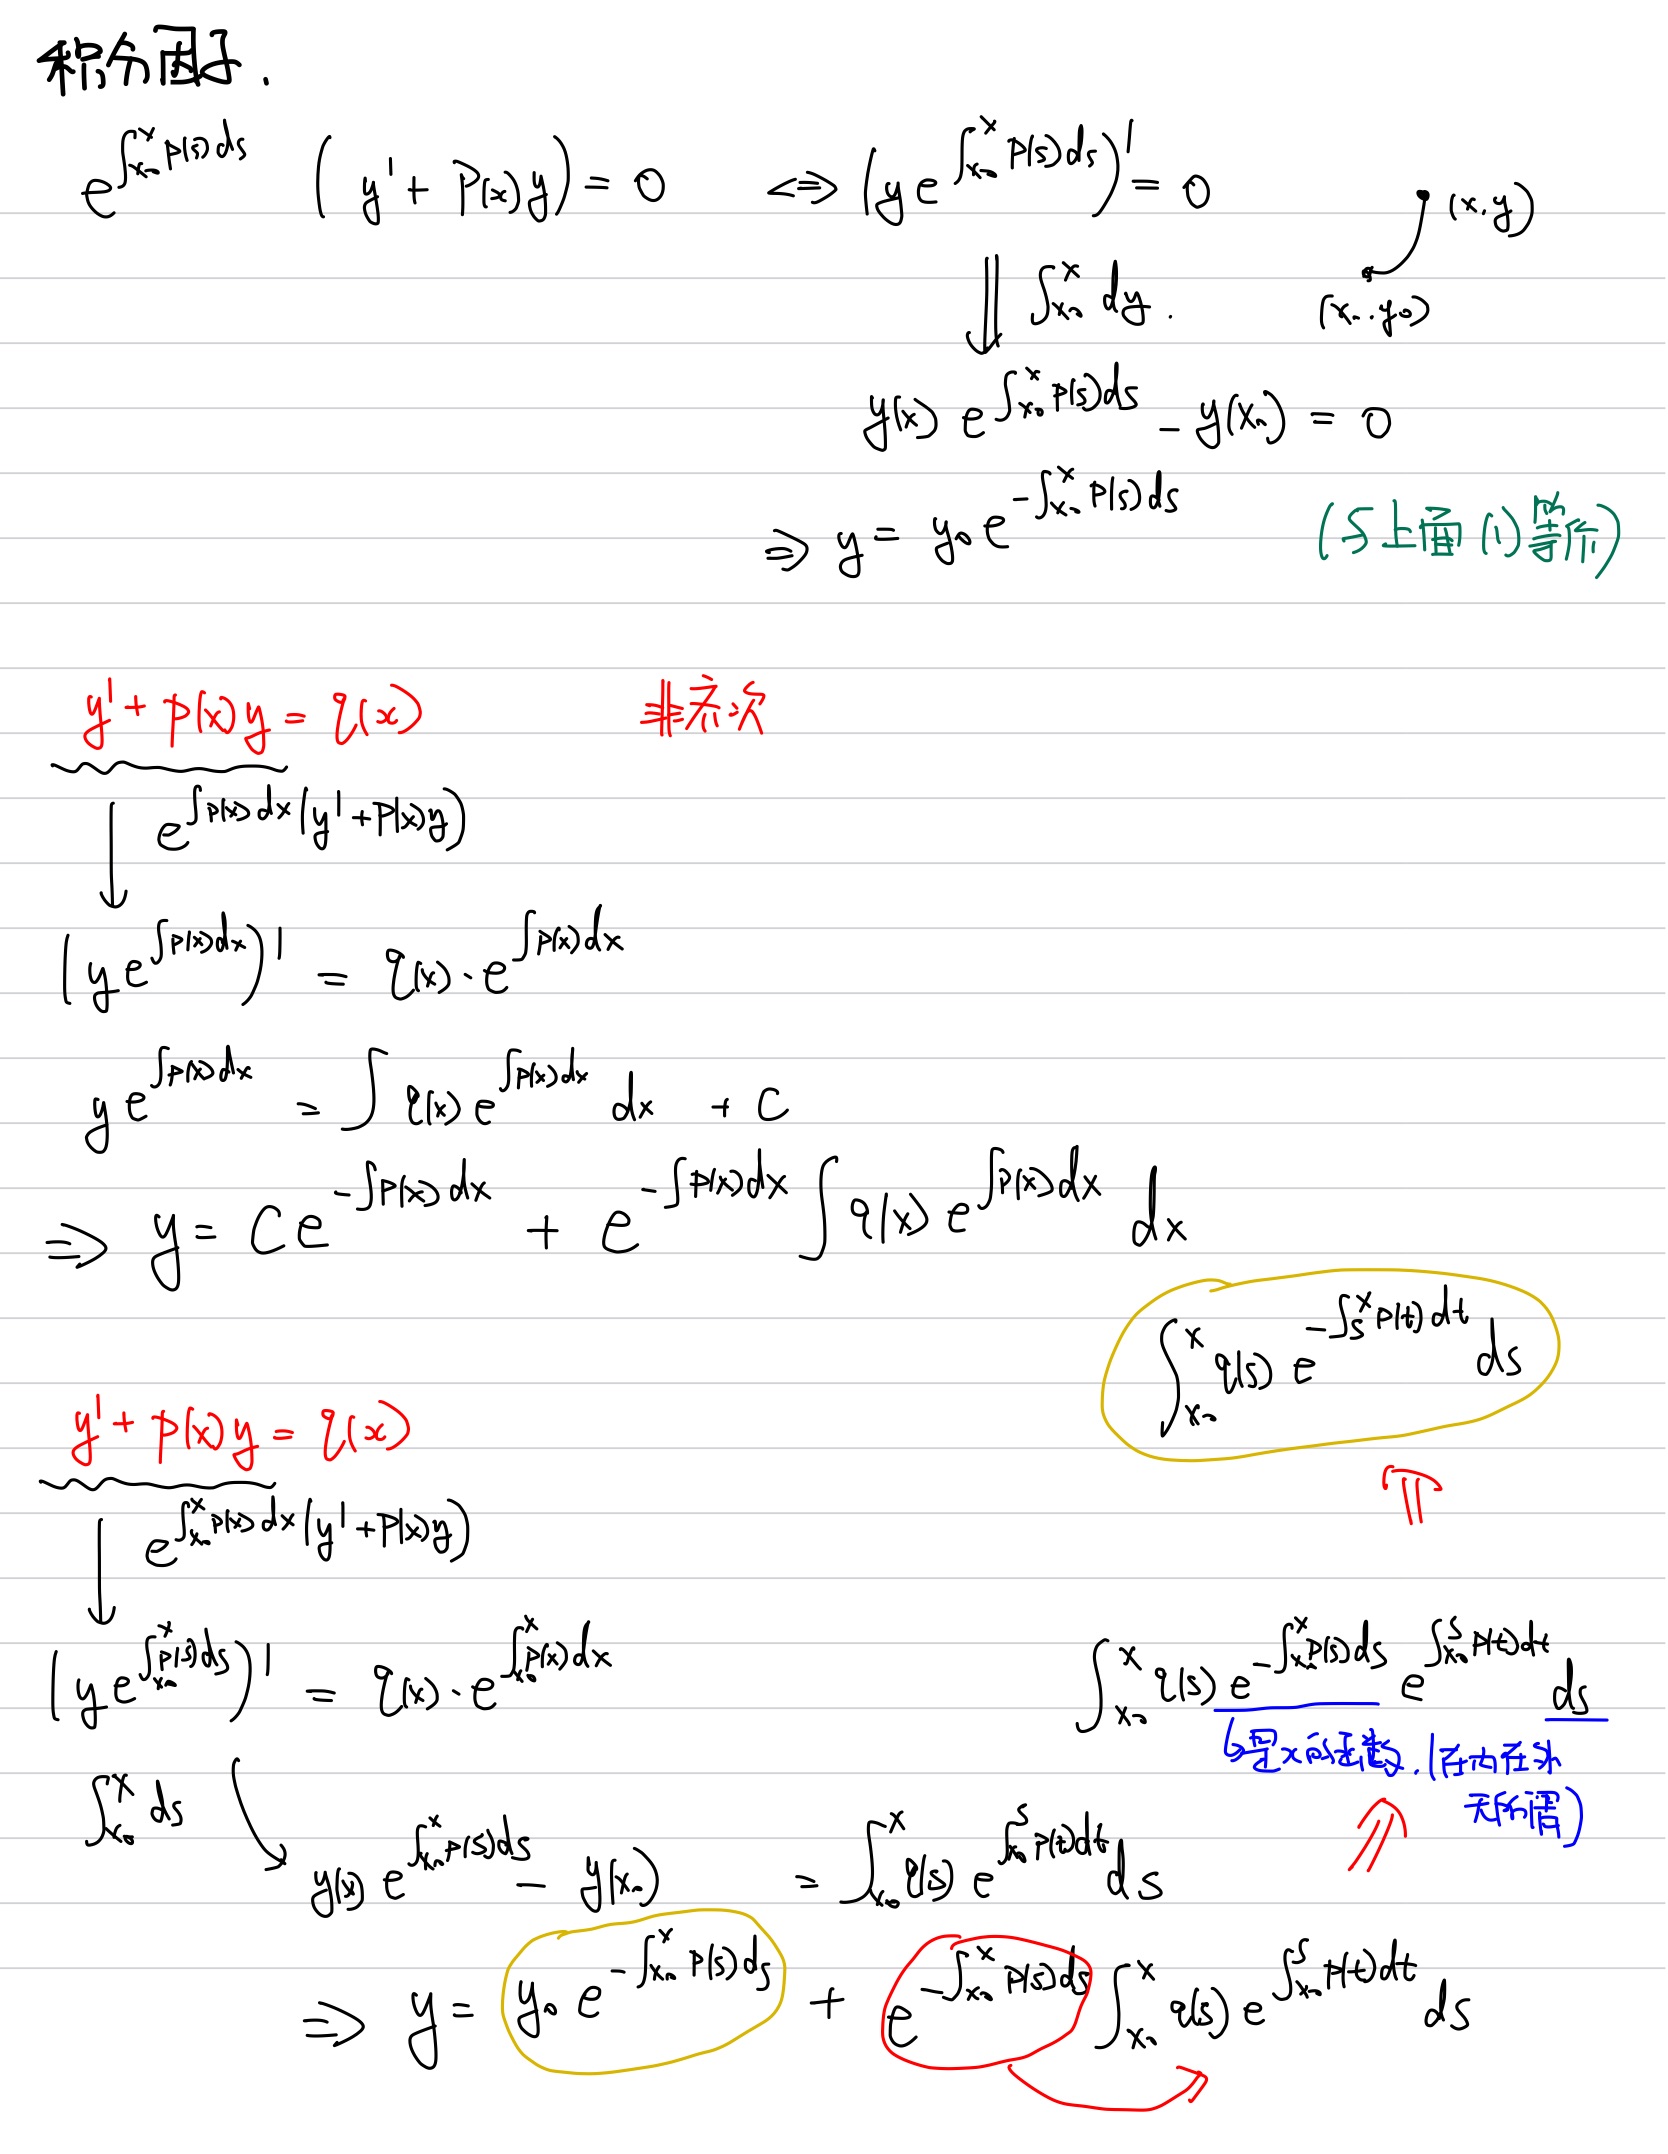 积分因子.
e^{∫_{x₀}^{x} p(s)ds} ( y' + P(x)y) = 0 <=> (y e^{∫_{x₀}^{x} P(s)ds})' = 0
(x.y)
⇓ ∫_{x₀}^{x} dy.
(x₀.y₀)
y(x) e^{∫_{x₀}^{x} P(s)ds} - y(x₀) = 0
⇒ y = y₀ e^{-∫_{x₀}^{x} P(s)ds} (与上面(1)等价)
y' + p(x)y = q(x) 非齐次
↓ e^{∫P(x)dx}(y' + P(x)y)
(y e^{∫P(x)dx})' = q(x)·e^{∫P(x)dx}
y e^{∫P(x)dx} = ∫ q(x) e^{∫P(x)dx} dx + C
⇒ y = C e^{-∫P(x)dx} + e^{-∫P(x)dx} ∫ q(x) e^{∫P(x)dx} dx
∫_{x₀}^{x} q(s) e^{-∫_{s}^{x} P(t)dt} ds
y' + p(x)y = q(x)
⇑
↓ e^{∫_{x₀}^{x} P(x)dx}(y' + P(x)y)
(y e^{∫_{x₀}^{x} P(s)ds})' = q(x)·e^{∫_{x₀}^{x} P(x)dx}
∫_{x₀}^{x} q(s) e^{-∫_{x₀}^{x} P(s)ds} e^{∫_{x₀}^{s} P(t)dt} ds
↳是x的函数.(在内在外
无所谓)
∫_{x₀}^{x} ds
y(x) e^{∫_{x₀}^{x} P(s)ds} - y(x₀) = ∫_{x₀}^{x} q(s) e^{∫_{x₀}^{s} P(t)dt} ds
⇒ y = y₀ e^{-∫_{x₀}^{x} P(s)ds} + e^{-∫_{x₀}^{x} P(s)ds} ∫_{x₀}^{x} q(s) e^{∫_{x₀}^{s} P(t)dt} ds